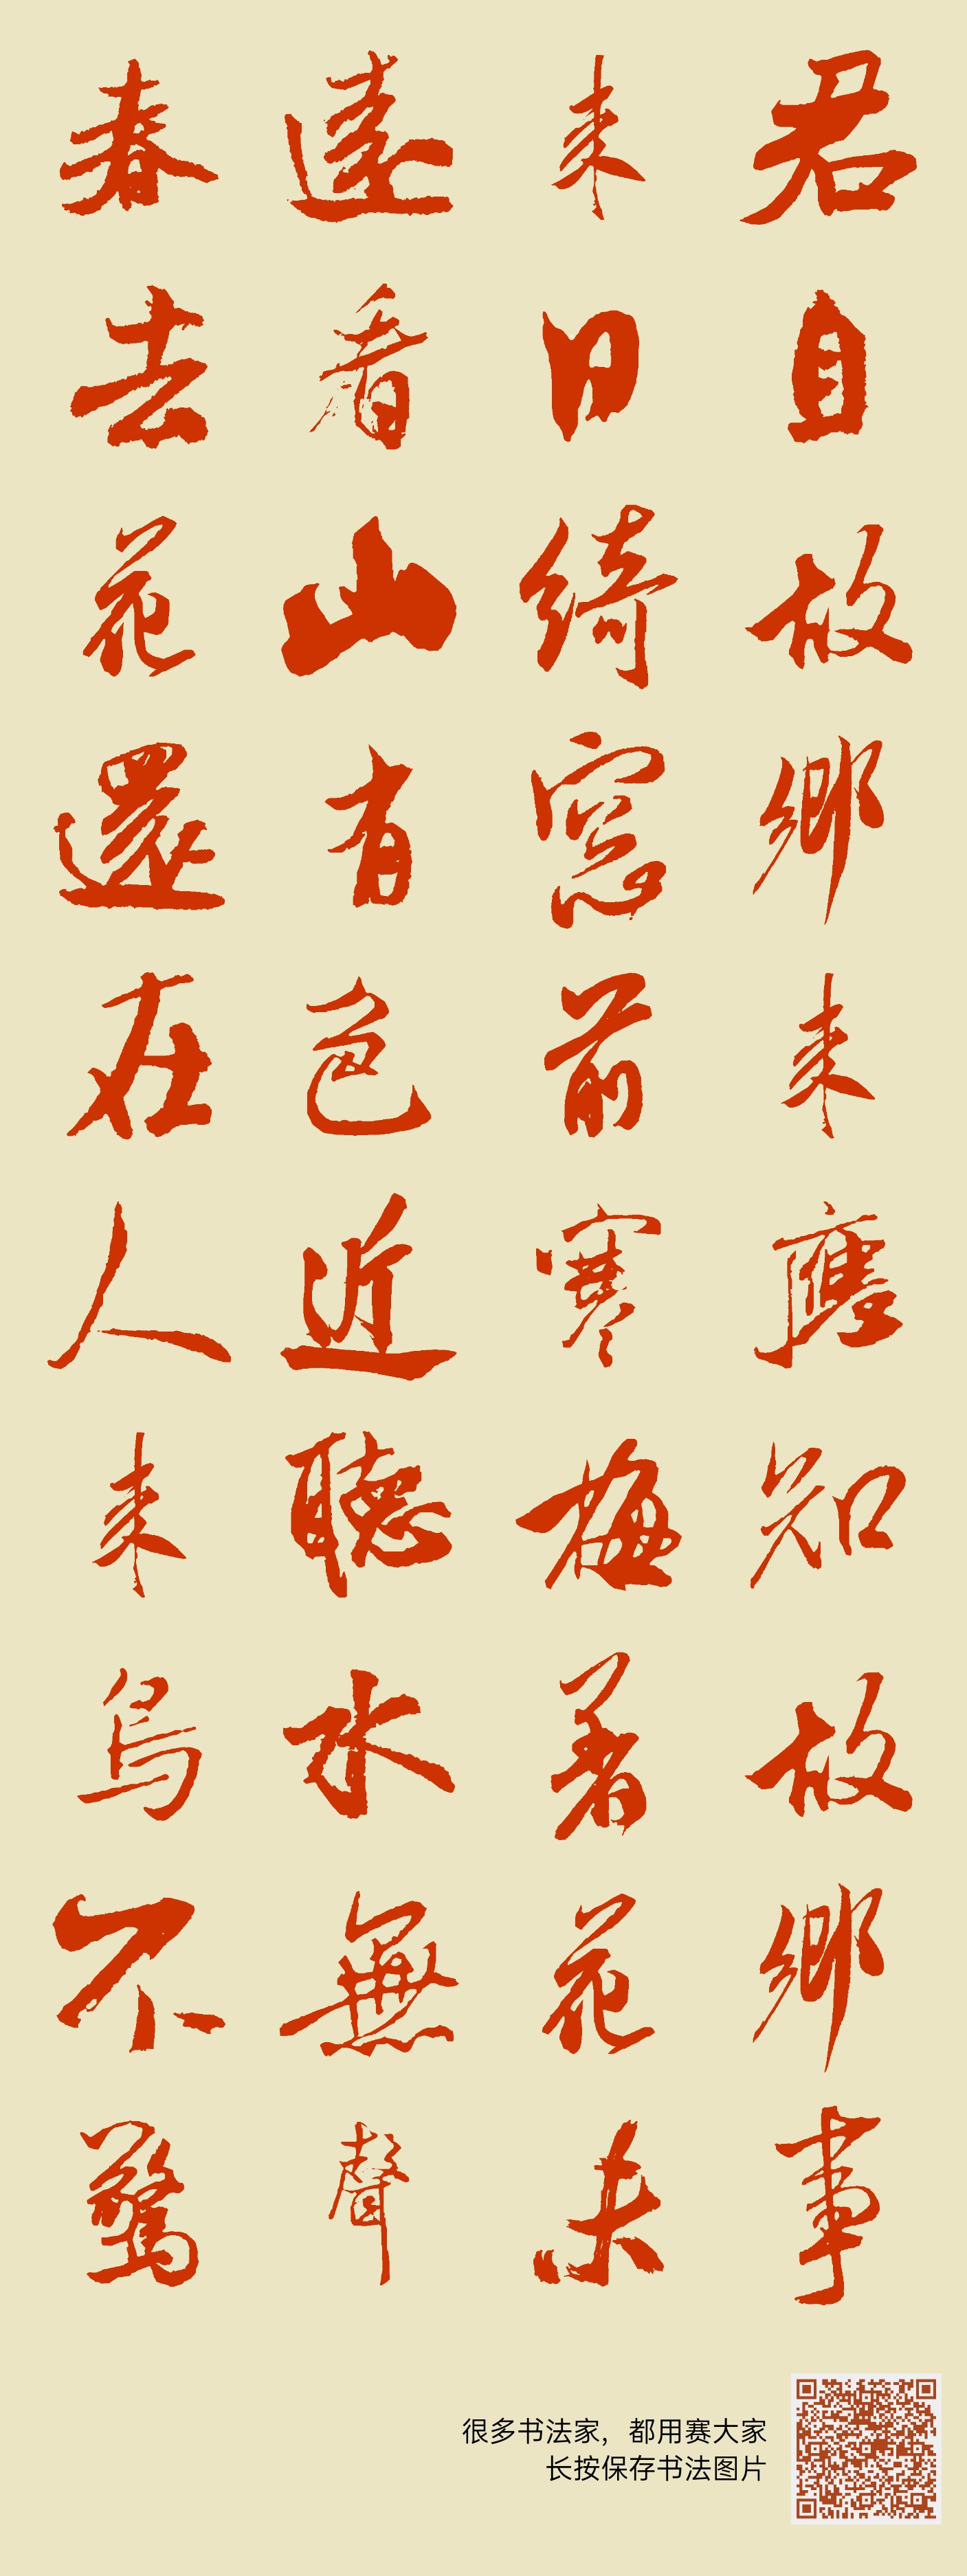 君自故鄉来應知故鄉事
来日綺窓前寒梅著花未
遠看山有色近聽水無聲
春去花還在人来鳥不驚
很多书法家，都用赛大家
长按保存书法图片